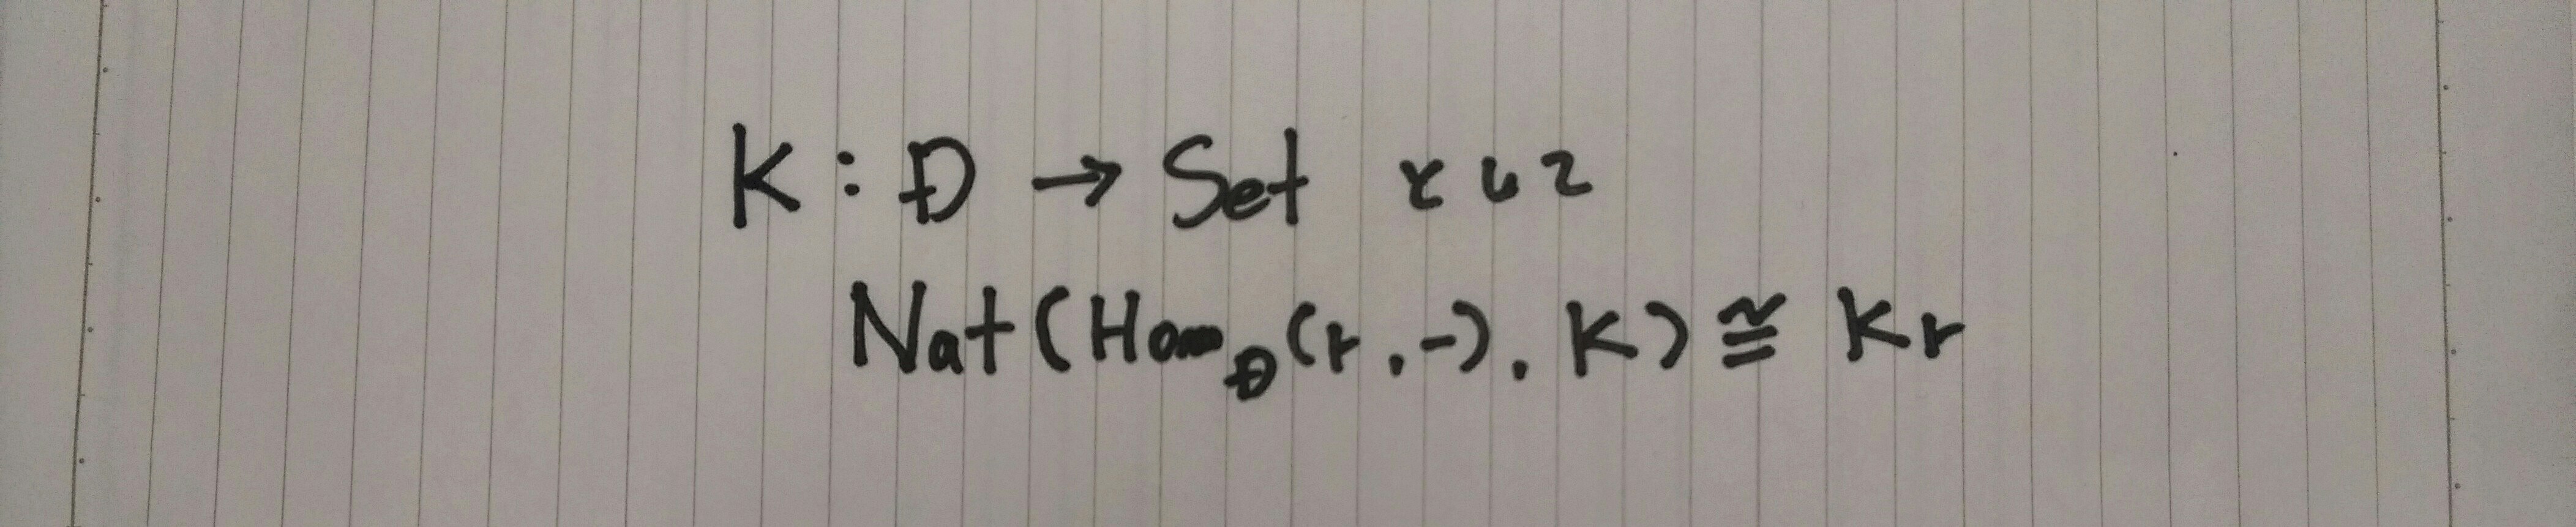 K : D → Set として
Nat(Hom_D(r,-), K) ≅ Kr